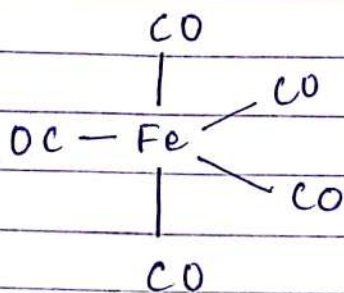 CO
CO
OC — Fe
CO
CO